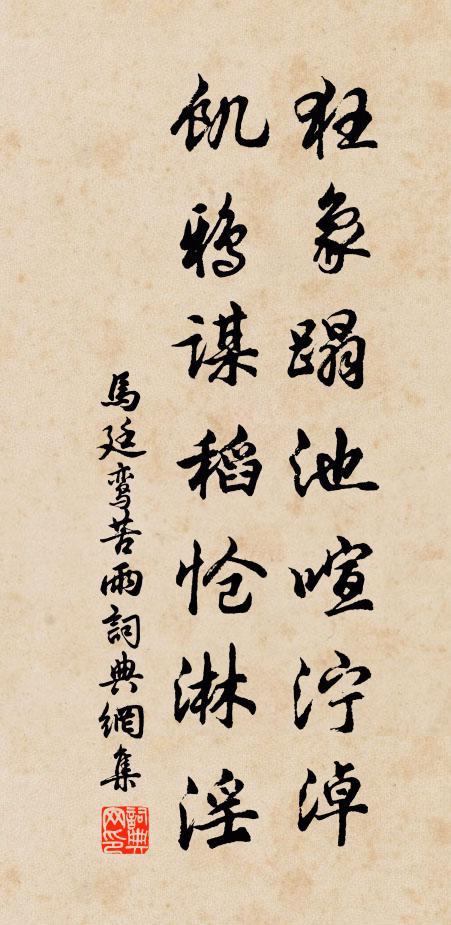 狂象蹋池喧泞淖
飢鴉謀稻怆淋淫
馬廷鸾苦雨詞典網集
詞典网印